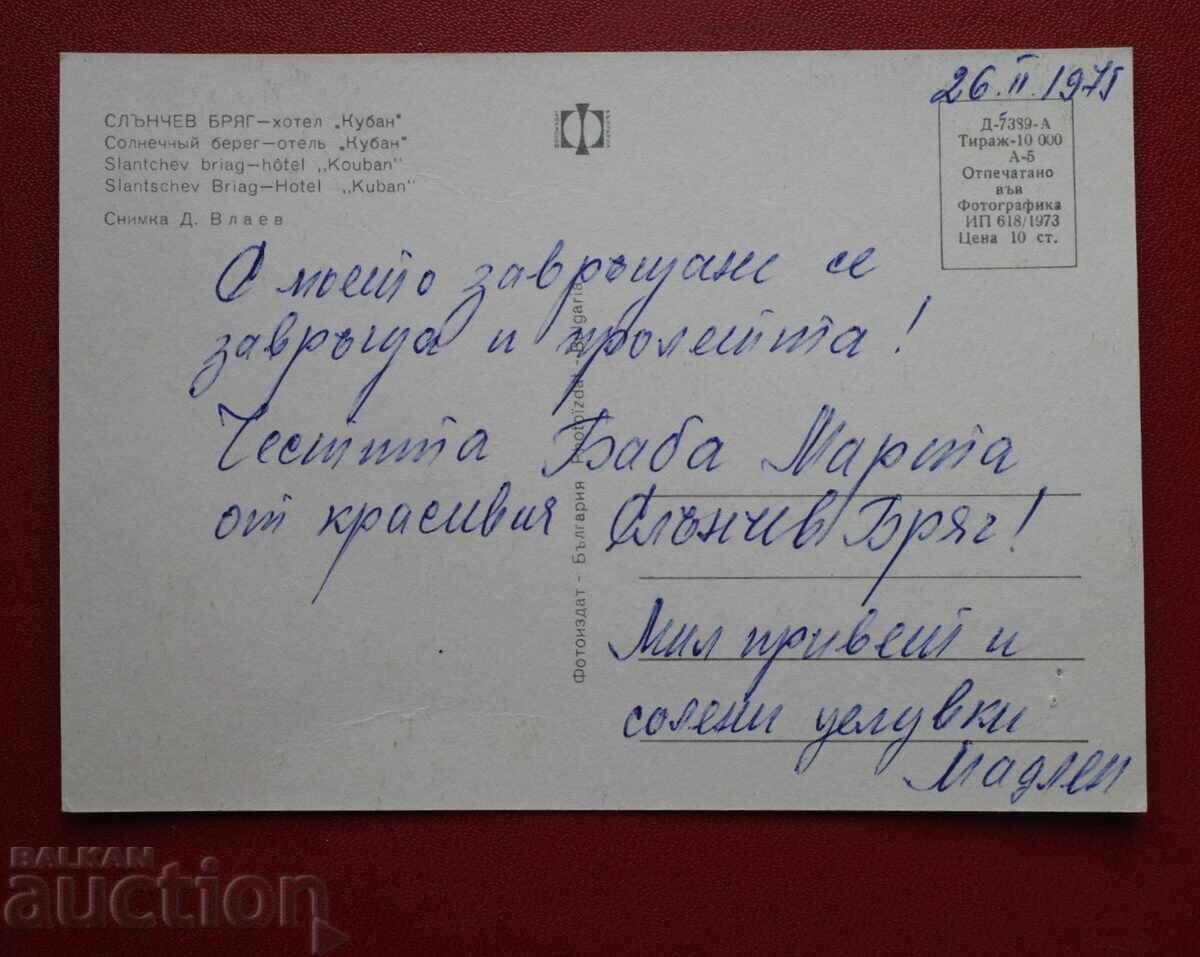 26.II.1975
СЛЪНЧЕВ БРЯГ—хотел „Кубан"
Солнечный берег—отель „Кубан"
Slantchev briag—hôtel „Kouban"
Slantschev Briag—Hotel „Kuban"
Снимка Д. Влаев
Д-7389-А
Тираж-10 000
А-5
Отпечатано
във
Фотографика
ИП 618/1973
Цена 10 ст.
С моето завръщане се
завръща и пролетта!
Честита Баба Марта
от красивия Слънчев Бряг!
Мил привет и
солени целувки
Мадлен
Фотоиздат - България Photoizdat - Bulgaria
BALKAN
auction